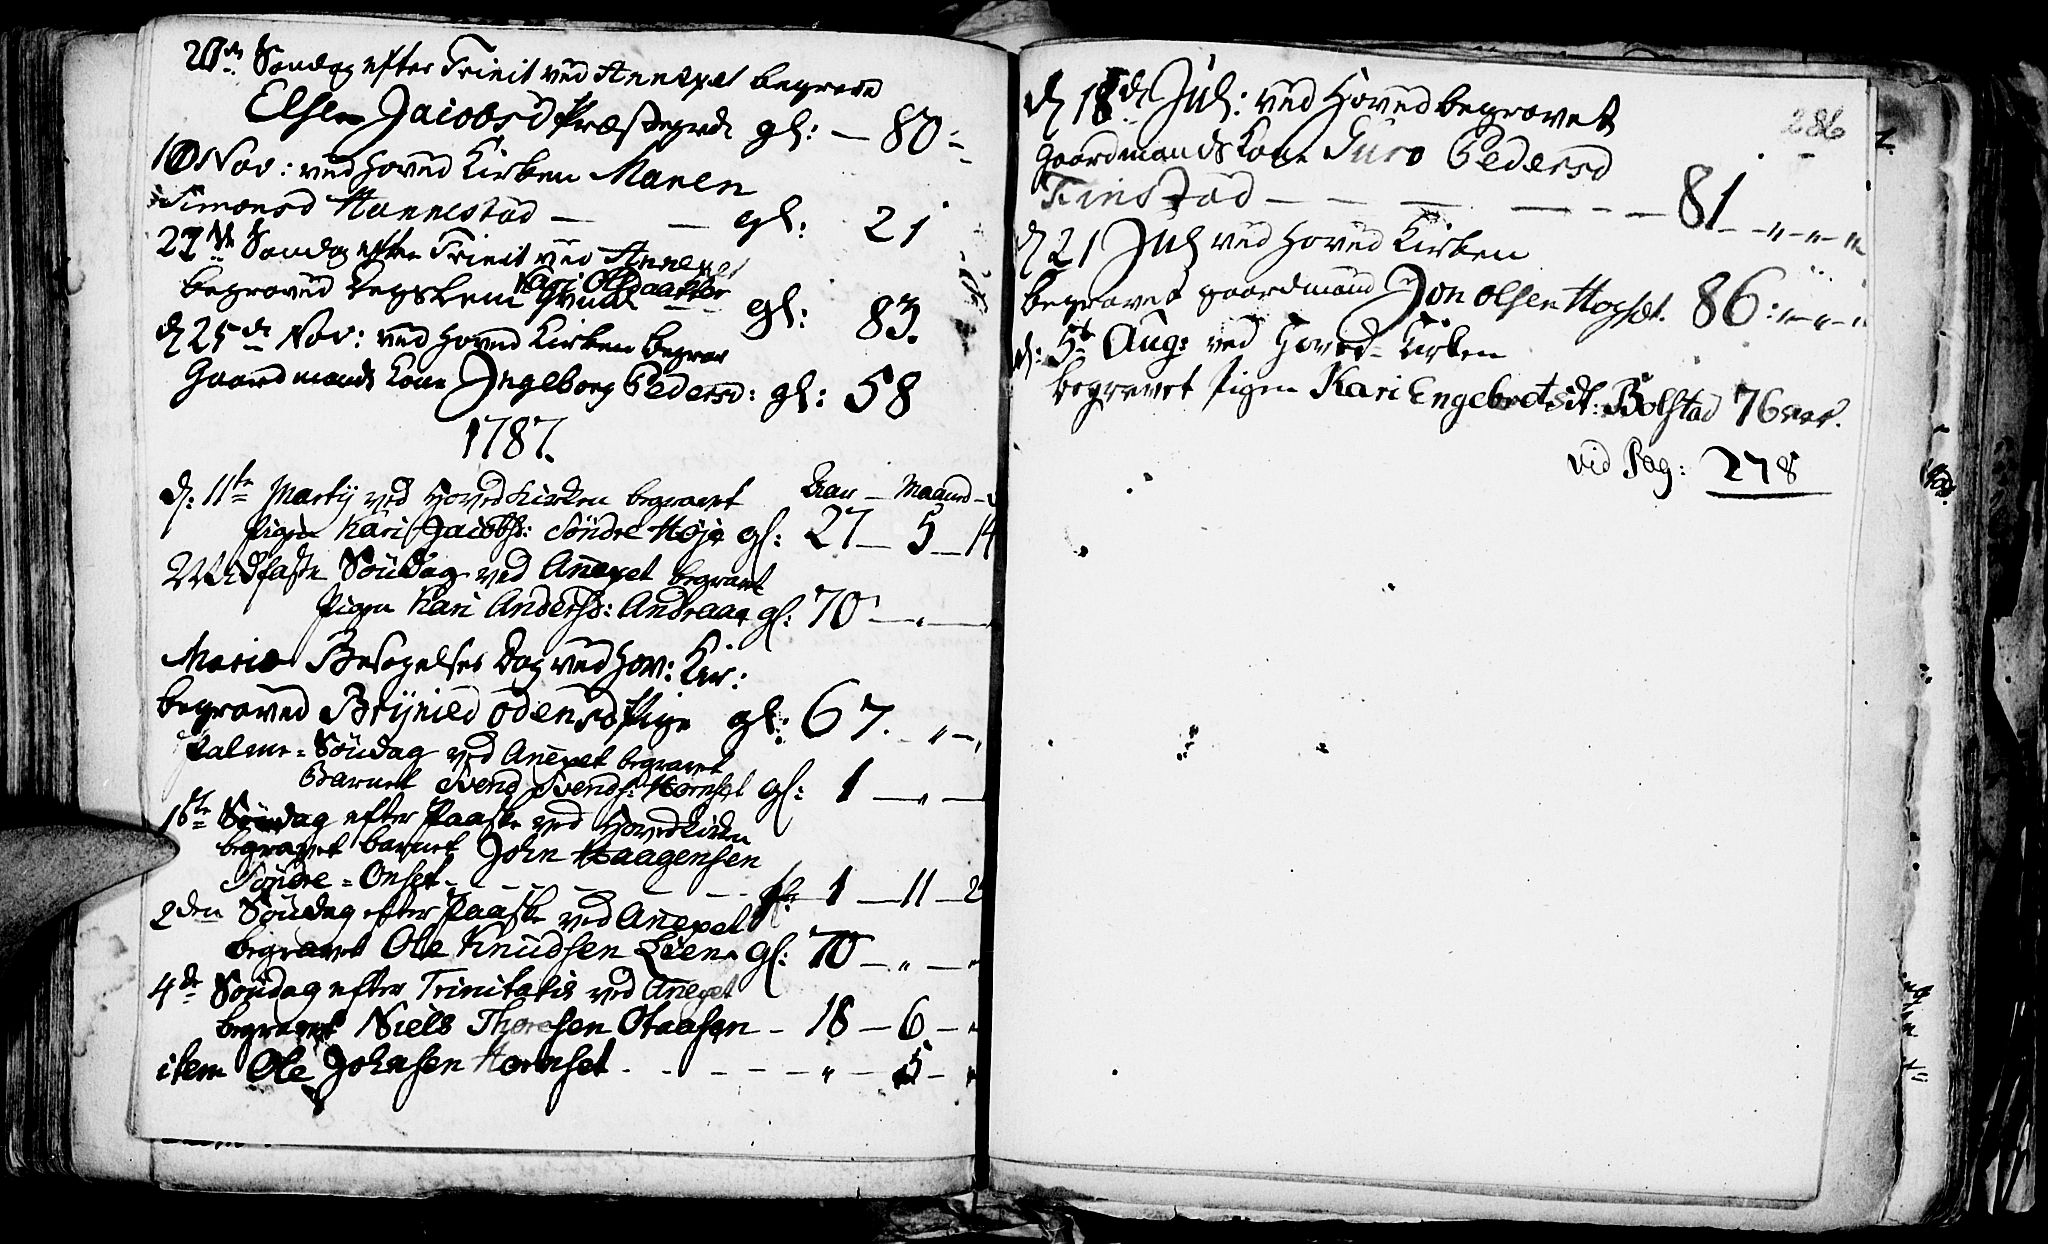 20de Søndag efter Trinit ved Annexet begravd
Else Jacobsd Præstegrd gl: — 80 —
10 Nov: ved Hoved Kirken Maren
Simonsd Hannestad — — gl: 21
22de Søndag efter Trinit ved Annexet
begraved Legslem Kari Olsdaatter gl: 83.
d 25de Nov: ved Hoved Kirken begrav
Gaardmands Kone Ingeborg Pedersd: gl: 58
1787.
d: 11te Martij ved Hovedkirken begravet Aar — Maaned —
Pigen Kari Jacobsd: Søndre Høje gl: 27 — 5 — 14
Midfaste Søndag ved Anexet begravet
Pigen Kari Andersd: Andraae gl: 70 — " —
Mariæ Besøgelses Dag ved Hov: Kir:
begraved Brynild Odensd Pige gl: 67. — " —
Palme-Søndag ved Anexet begravet
Barnet Svend Svends: Hornset gl: 1 — " —
1ste Søndag efter Paaske ved Hovedkirken
begravet barnet John Haagensen
Søndre-Onset. — — — — gl: 1 — 11 — 2
2den Søndag efter Paaske ved Anexet
begravet Ole Knudsen Lien gl: 70 — " — "
4de Søndag efter Trinitatis ved Anexet
begravet Niels Thoresen Otaasen — 18 — 6 — "
item Ole Johnsen Hornset - - - - - " — 5 — "
286
d 18de Jul: ved Hoved begravet
Gaardmands Kone Guro Pedersd
Finstad — — — — — — 81 — " — " — "
d 21 Jul ved Hoved Kirken
begravet gaardmand Jon Olsen Hogset. 86: " — " — "
d: 5te Aug: ved Hoved-Kirken
begravet Pigen Kari Engebretsdt: Bolstad 76 aar.
vid Pag: 278